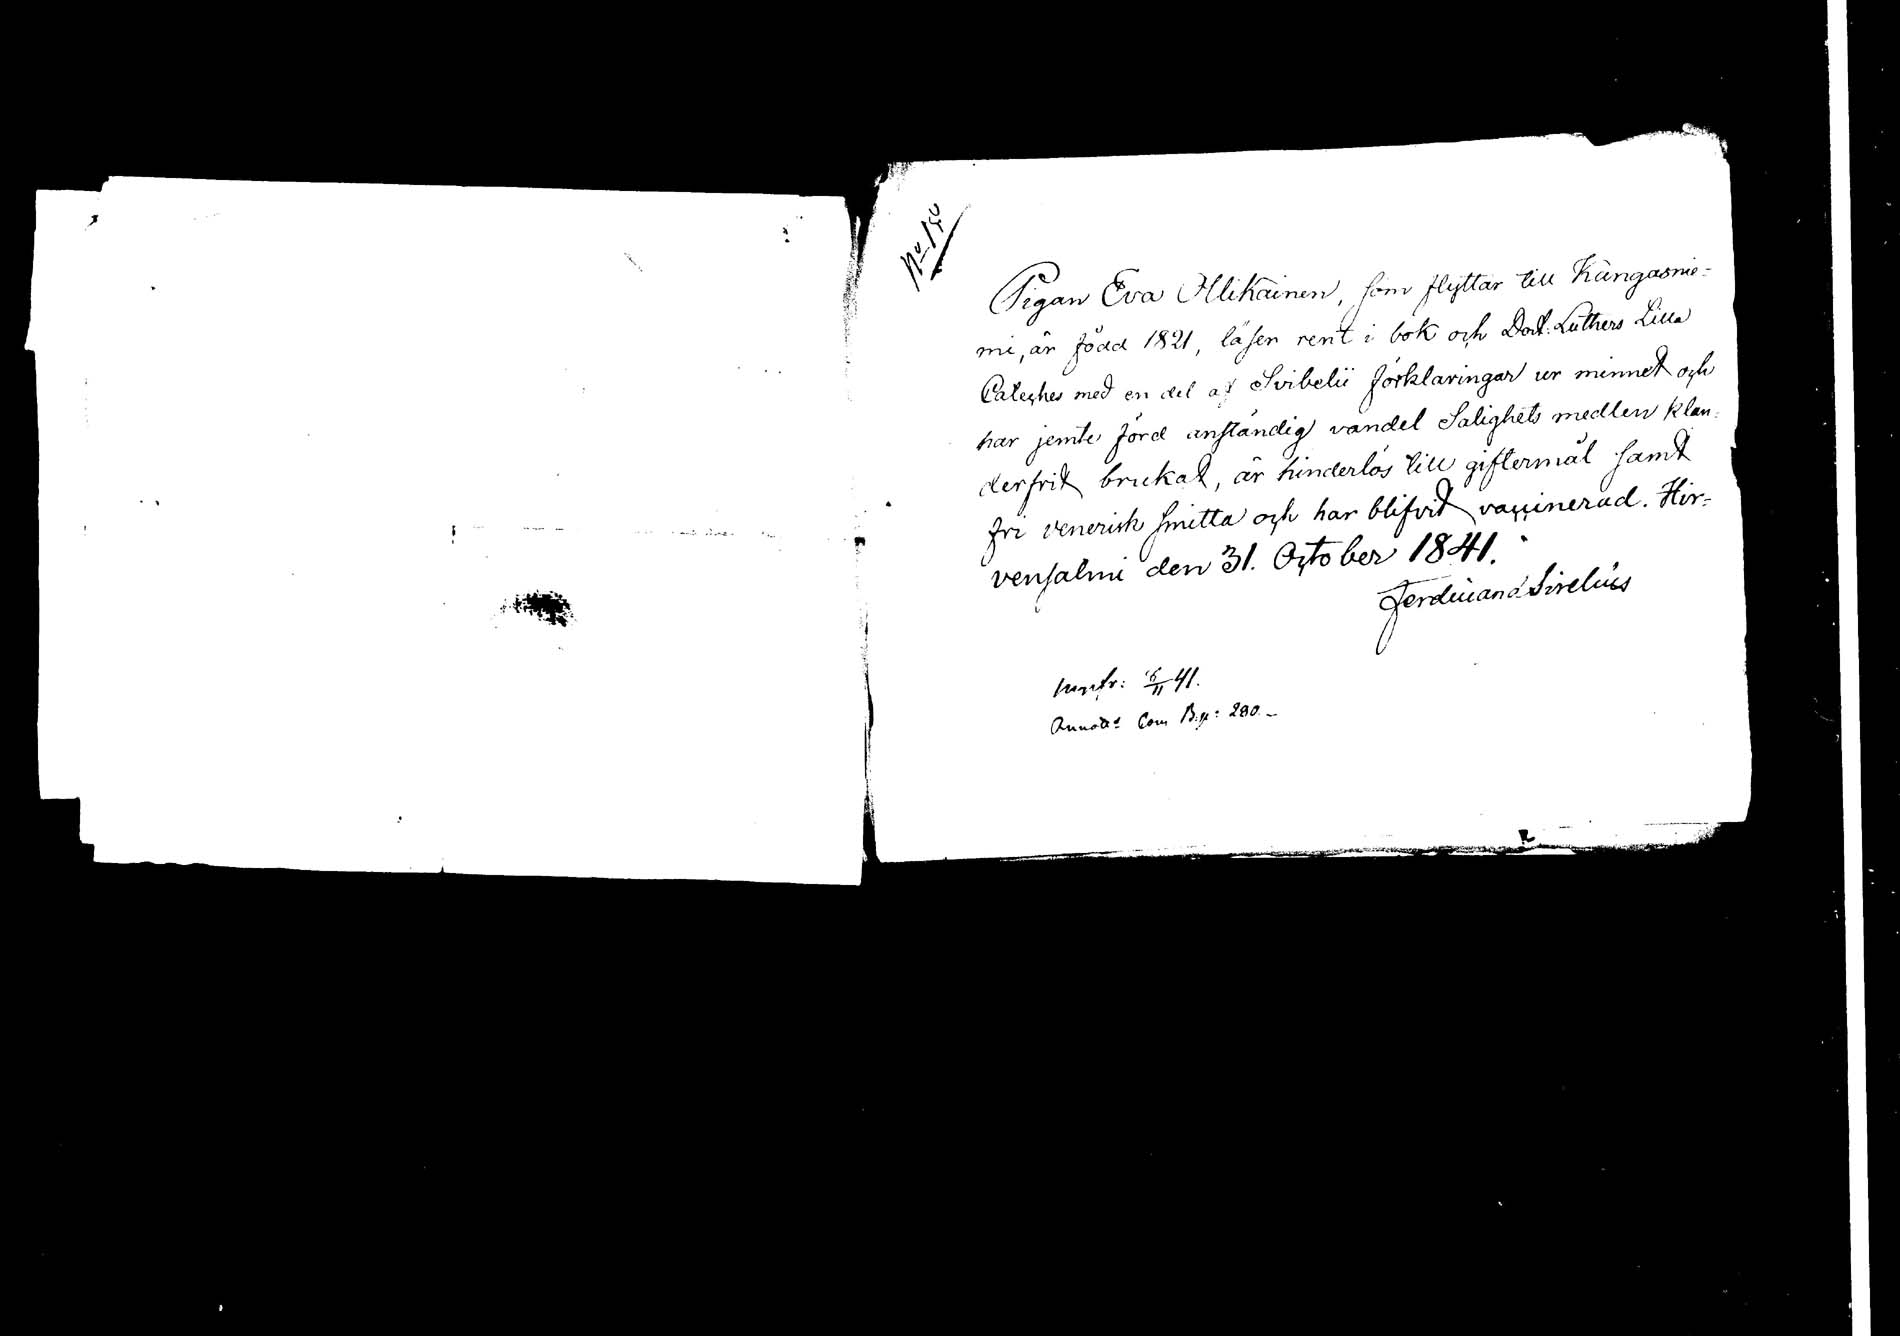 Pigan Eva Ollikainen, som flyttar till Kangasnie=
mi, är född 1821, läser rent i bok och Doct: Luthers Lilla
Cateches med en del af Svibelii förklaringar ur minnet och
har jemte förd anständig vandel Salighets medlen klan=
derfritt brukat, är hinderlös till giftermål samt
fri venerisk smitta och har blifvit vaccinerad. Hir=
vensalmi den 31. October 1841.
Ferdinand Sirelius
41.
Com B. p: 280.